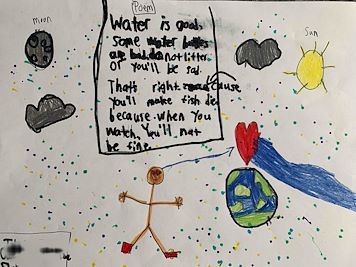 Poem
moon
Sun
Water is good.
Some water
are bad. do not litter.
Or you'll be sad.
That's right. cause
you'll make fish die
because when you
watch, You'll not
be fine.